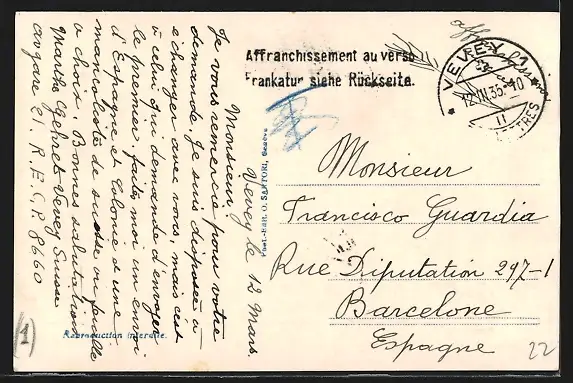 Affranchissement au verso
Frankatur siehe Rückseite.
VEVEY 1
12.III.35-10
LETTRES
Vevey le 12 Mars.
Monsieur
Je vous remercie pour votre
demande, je suis disposée à
echanger avec vous, mais c'est
à celui qui demande d'envoyer
le premier, faites moi un envoi
d'Espagne et Colonie d'une
de suisse ou feuille
a choix. Bonnes salutations
Marthe Gehret Vevey Suisse
av gare 21. R.E.G.P. 8660
Phot.-Edit. O. SARTORI, Genève
Monsieur
Francisco Guardia
Rue Diputation 297-1
Barcelone
Espagne
Reproduction interdite.
(1)
22